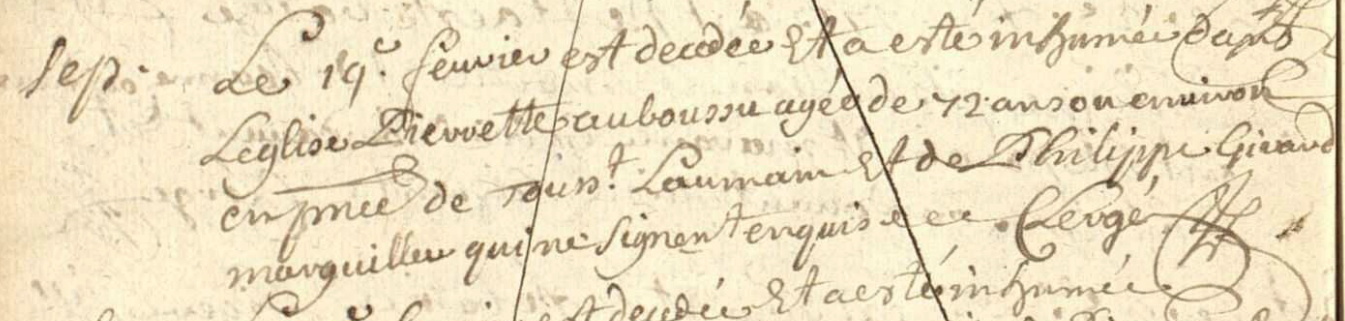 Sep. Le 19e. feuvrier est decedée Et a esté inhumée dans
Leglise Pierrette auboussu agée de 72 ans ou environ
en pnce de Tousst. Laumain Et de Philippe Girard
marguillier qui ne signent enquis Clergé
est decedée Et a esté inhumée